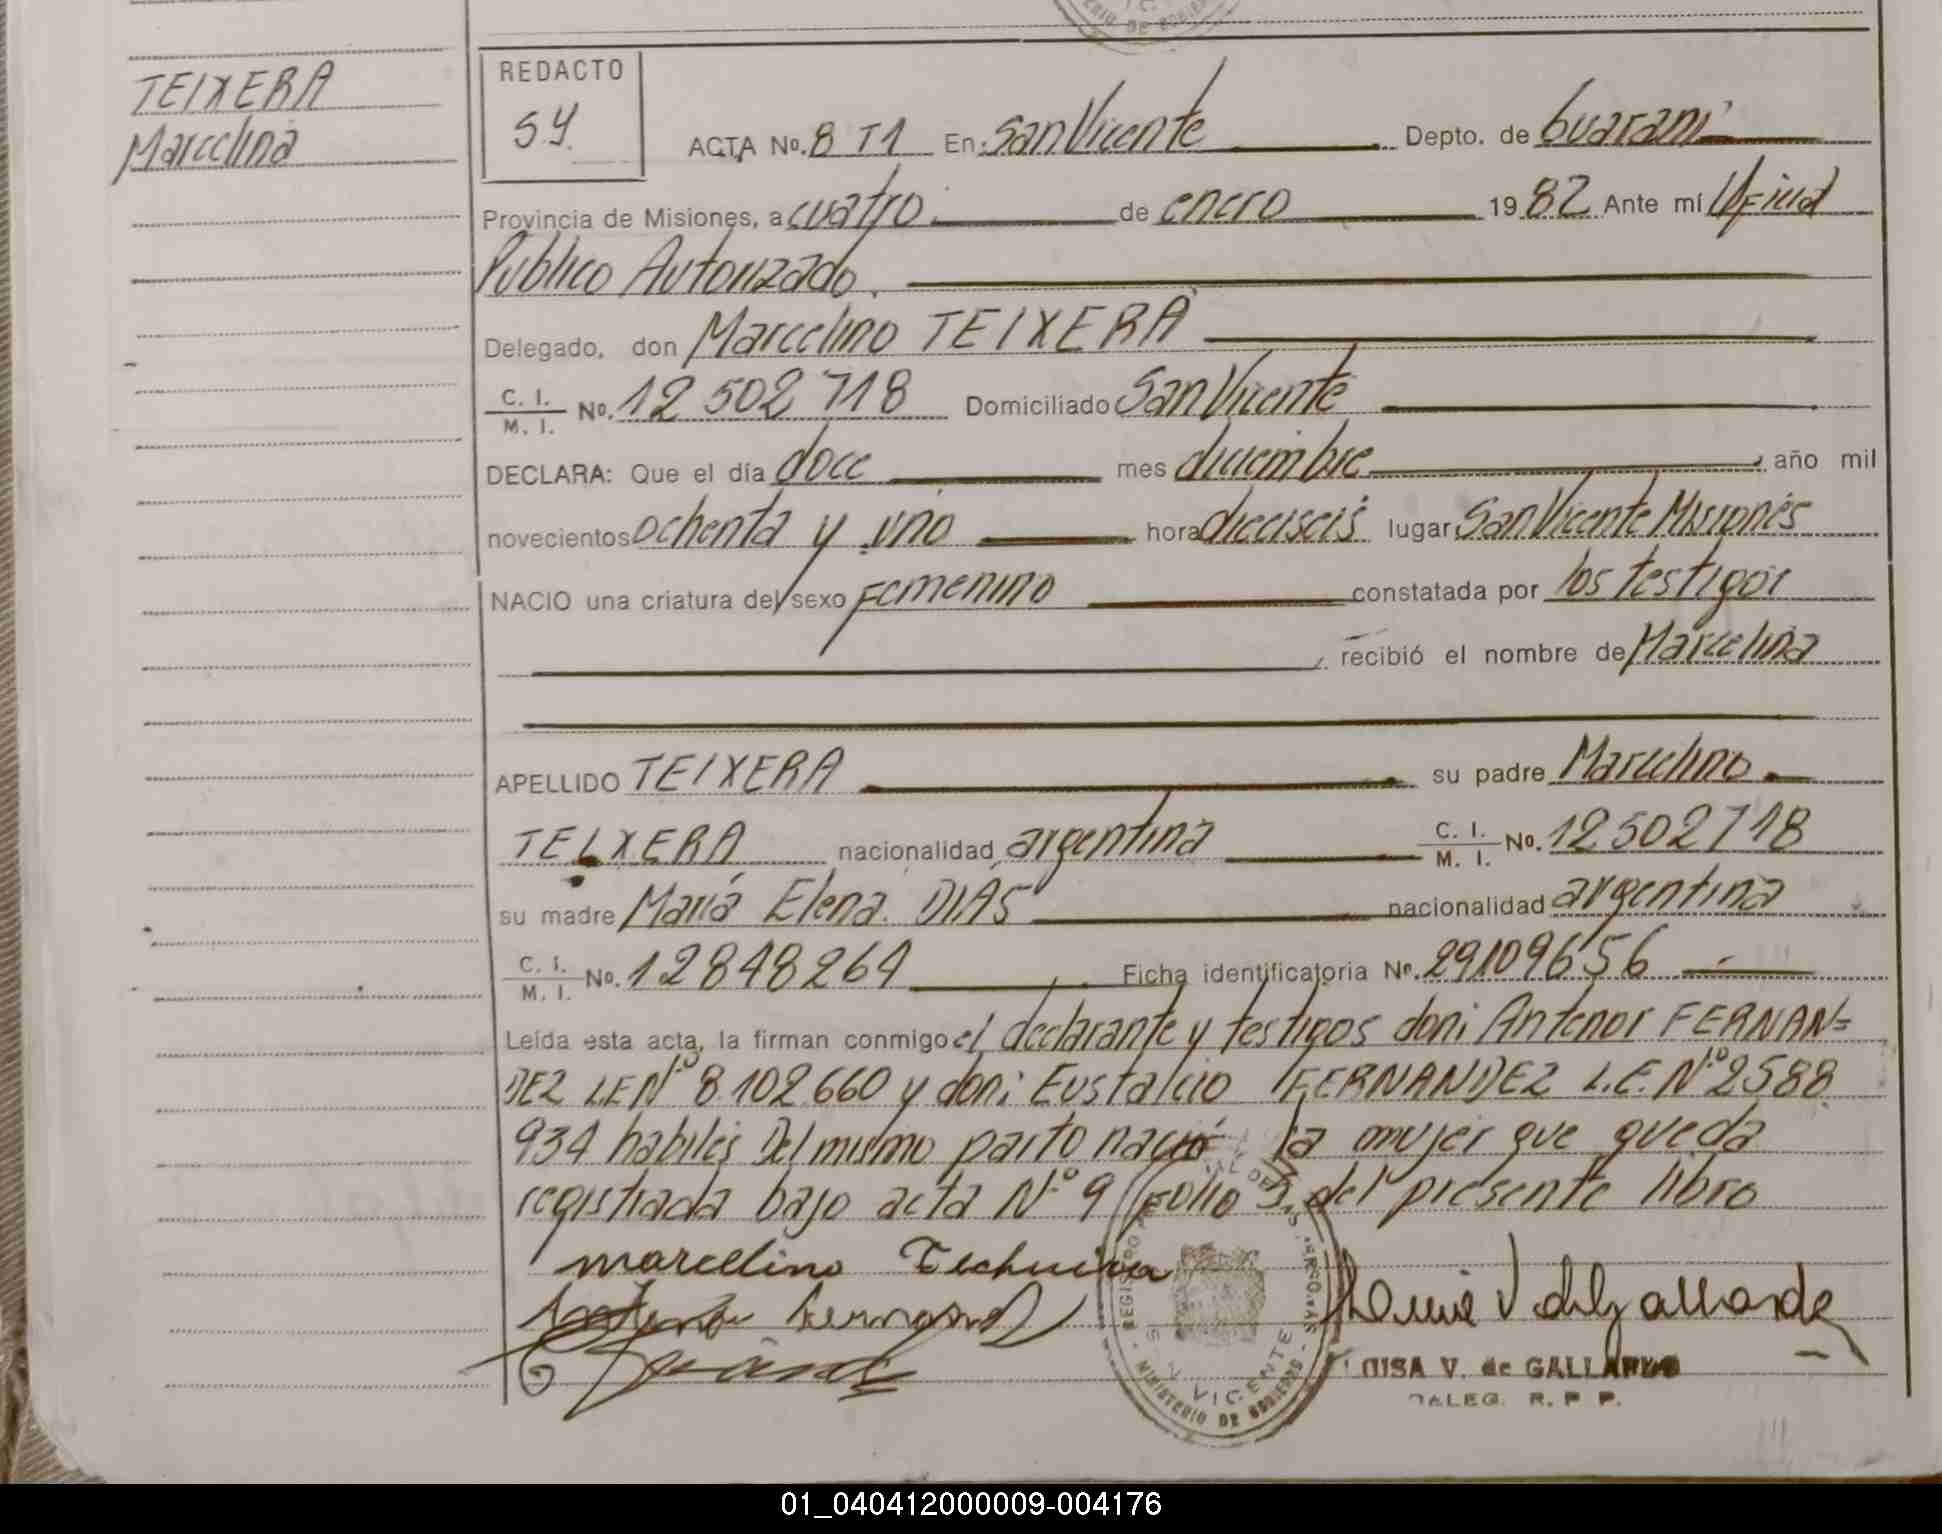 TEIXERA
Marcelina
REDACTO
SY.
ACTA No. 8 T1 En: San Vicente Depto. de Guaraní
Provincia de Misiones, a cuatro de enero 1982 Ante mí Oficial
Publico Autorizado.
Delegado, don Marcelino TEIXERA
C. I. / M. I. No. 12 502 718 Domiciliado San Vicente
DECLARA: Que el día doce mes diciembre, año mil
novecientos ochenta y uno hora dieciseis lugar San Vicente Misiones
NACIO una criatura del sexo Femenino constatada por los testigos
recibió el nombre de Marcelina
APELLIDO TEIXERA su padre Marcelino
TEIXERA nacionalidad argentina C. I. / M. I. No. 12502718
su madre María Elena DIAS nacionalidad argentina
C. I. / M. I. No. 12848264 Ficha identificatoria No. 29109656
Leída esta acta, la firman conmigo el declarante y testigos don: Antenor FERNAN=
DEZ L.E Nº 8.102.660 y don: Eustalcio FERNANDEZ L.E. Nº 2588
934 habiles Del mismo parto nació la mujer que queda
registrada bajo acta Nº 9 Folio 5. del presente libro
marcelino Techeira
MINISTERIO DE GOBIERNO
VICENTE
LUISA V. de GALLARDO
DELEG. R. P. P.
01_040412000009-004176